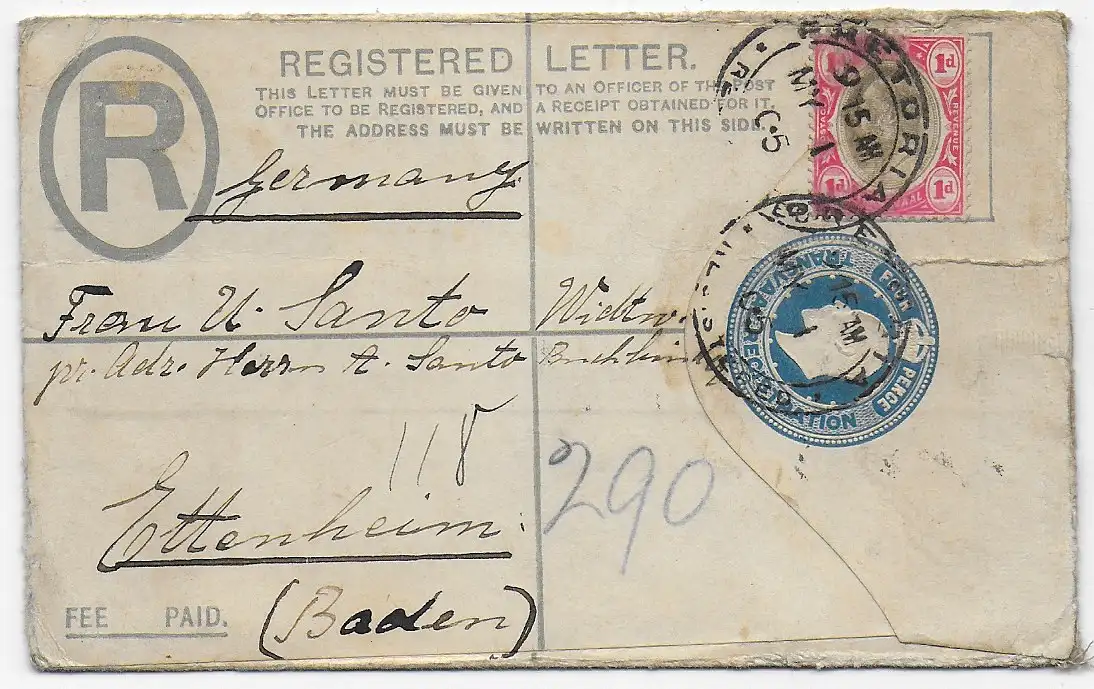 R
REGISTERED LETTER.
THIS LETTER MUST BE GIVEN TO AN OFFICER OF THE POST
OFFICE TO BE REGISTERED, AND A RECEIPT OBTAINED FOR IT.
THE ADDRESS MUST BE WRITTEN ON THIS SIDE.
PRETORIA
9 15 AM
MY 1
05
1d 1d
POSTAGE REVENUE
1d 1d
Germany.
TRANSVAAL REGISTRATION
FOUR PENCE
15 AM
1
Frau U. Santo Widtw.
pr. Adr. Herrn A. Santo
118
290
Ettenheim:
(Baden)
FEE PAID.